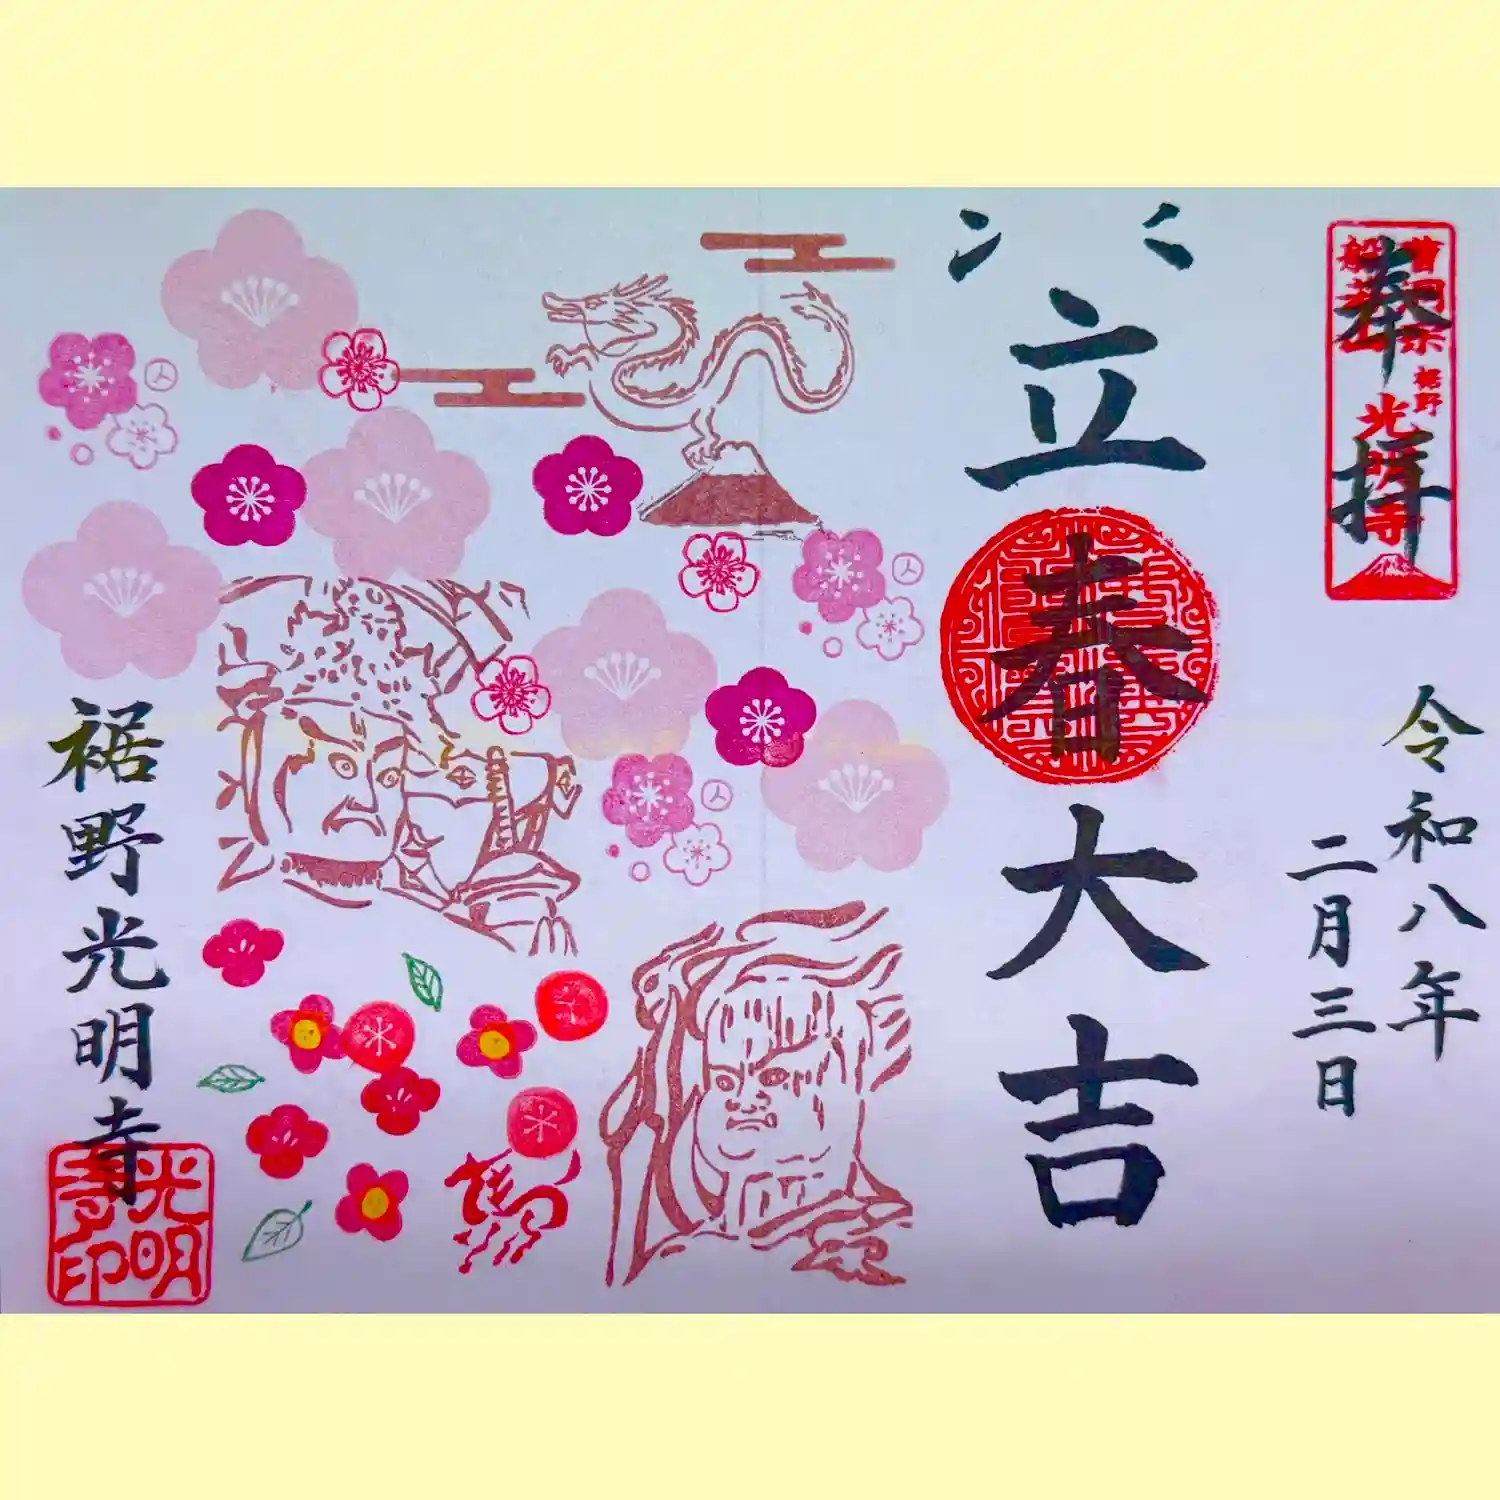 奉拝
裾野
光明寺
令和八年
二月三日
立春大吉
裾野光明寺
光明
寺印